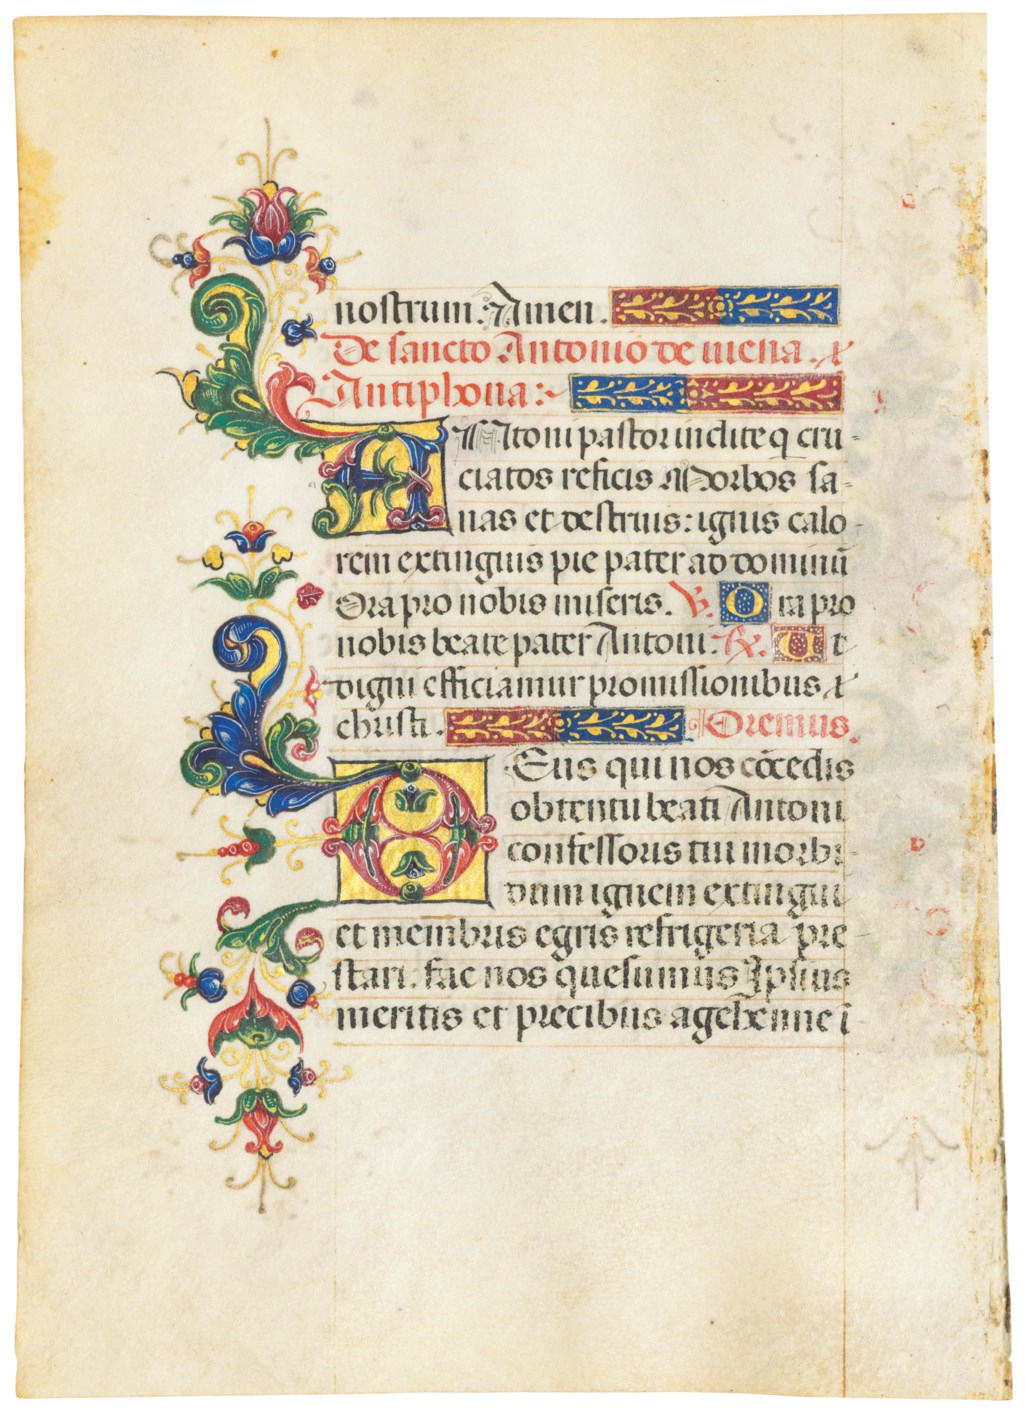 nostrum. Amen.
De sancto Antonio de
Antiphona:
ANtoni pastor inclite q cru-
ciatos reficis Morbos sa-
nas et destruis: ignis calo-
rem extinguis pie pater ad dominū
Ora pro nobis miseris. V. Ora pro
nobis beate pater Antoni: R. Ut
digni efficiamur promissionibus
christi. Oremus.
DEus qui nos cōcedis
obtentu beati Antoni
confessoris tui morbi-
dum ignem extingui
et membris egris refrigeria pre
stari. fac nos quesumus Ipsius
meritis et precibus agehenne i